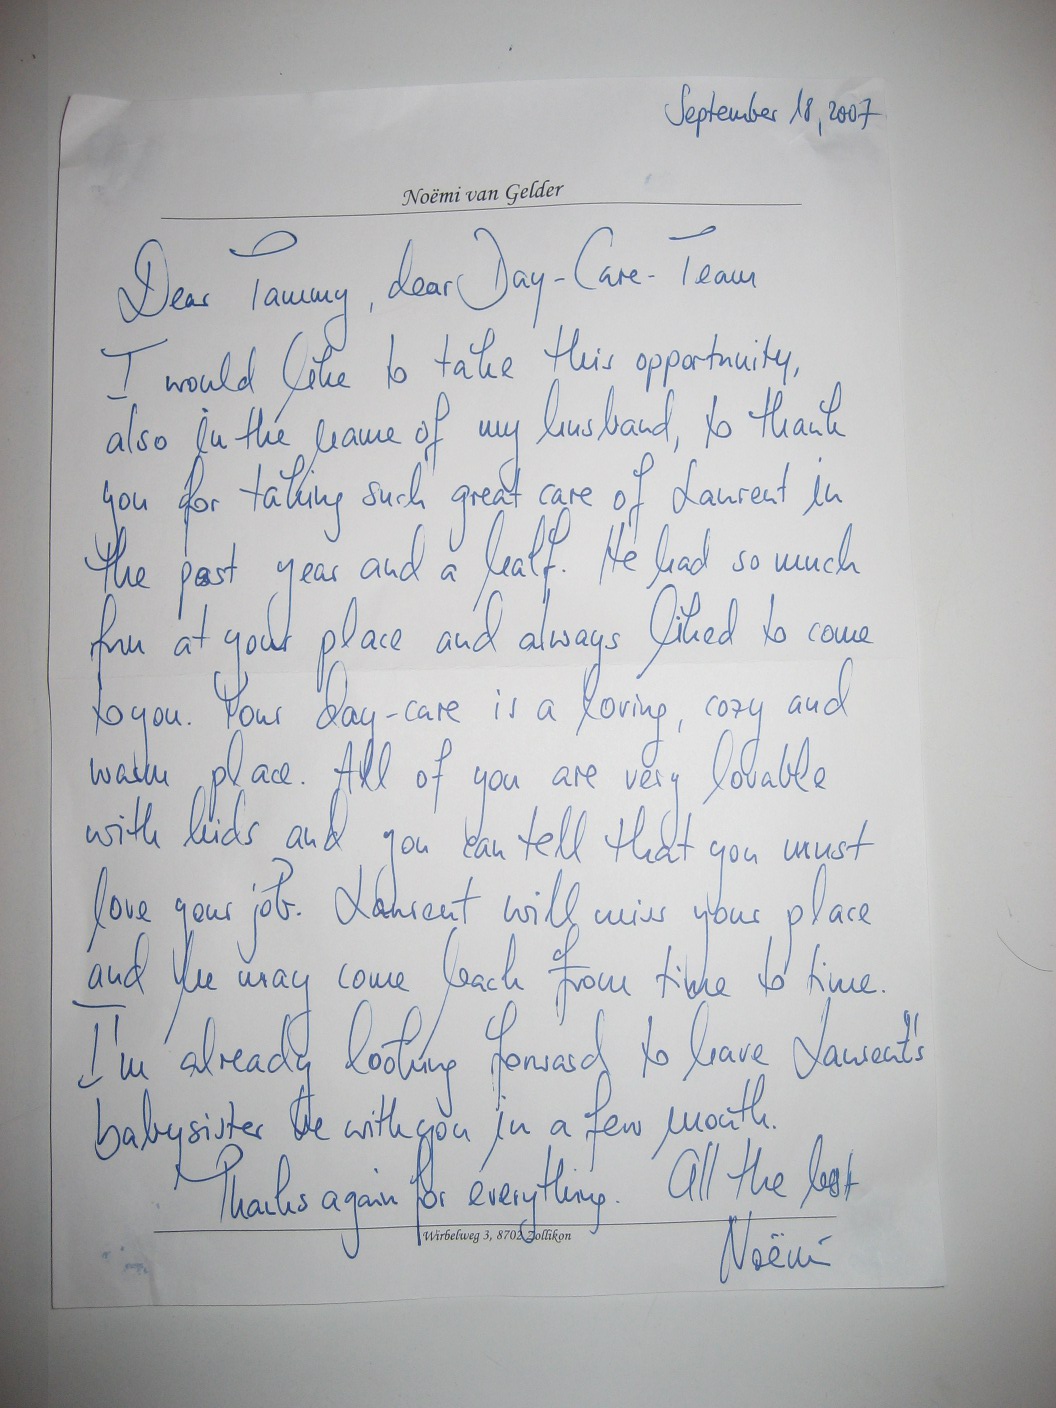 September 18, 2007
Noëmi van Gelder
Dear Tammy, dear Day-Care-Team
I would like to take this opportunity,
also in the name of my husband, to thank
you for taking such great care of Laurent in
the past year and a half. He had so much
fun at your place and always liked to come
to you. Your day-care is a loving, cozy and
warm place. All of you are very lovable
with kids and you can tell that you must
love your job. Laurent will miss your place
and he may come back from time to time.
I'm already looking forward to leave Laurent's
babysister be with you in a few month.
Thanks again for everything. All the best
Wirbelweg 3, 8702 Zollikon
Noëmi